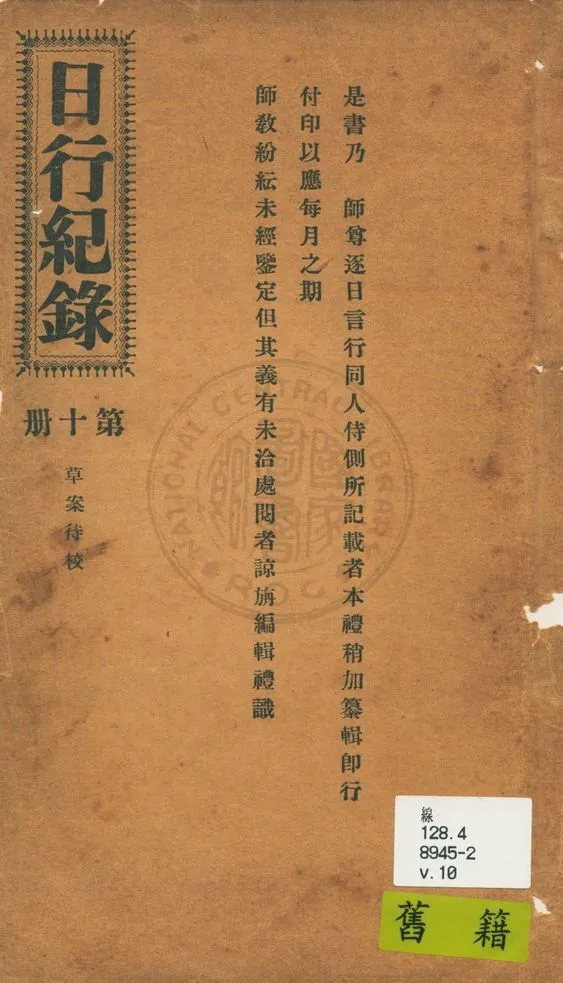 日行紀錄
第十册
草案待校
是書乃　師尊逐日言行同人侍側所記載者本禮稍加纂輯卽行
付印以應每月之期
師教紛紜未經鑒定但其義有未洽處閱者諒旃編輯禮識
NATIONAL CENTRAL LIBRARY
R.O.C
國家圖書
線
128.4
8945-2
v.10
舊籍